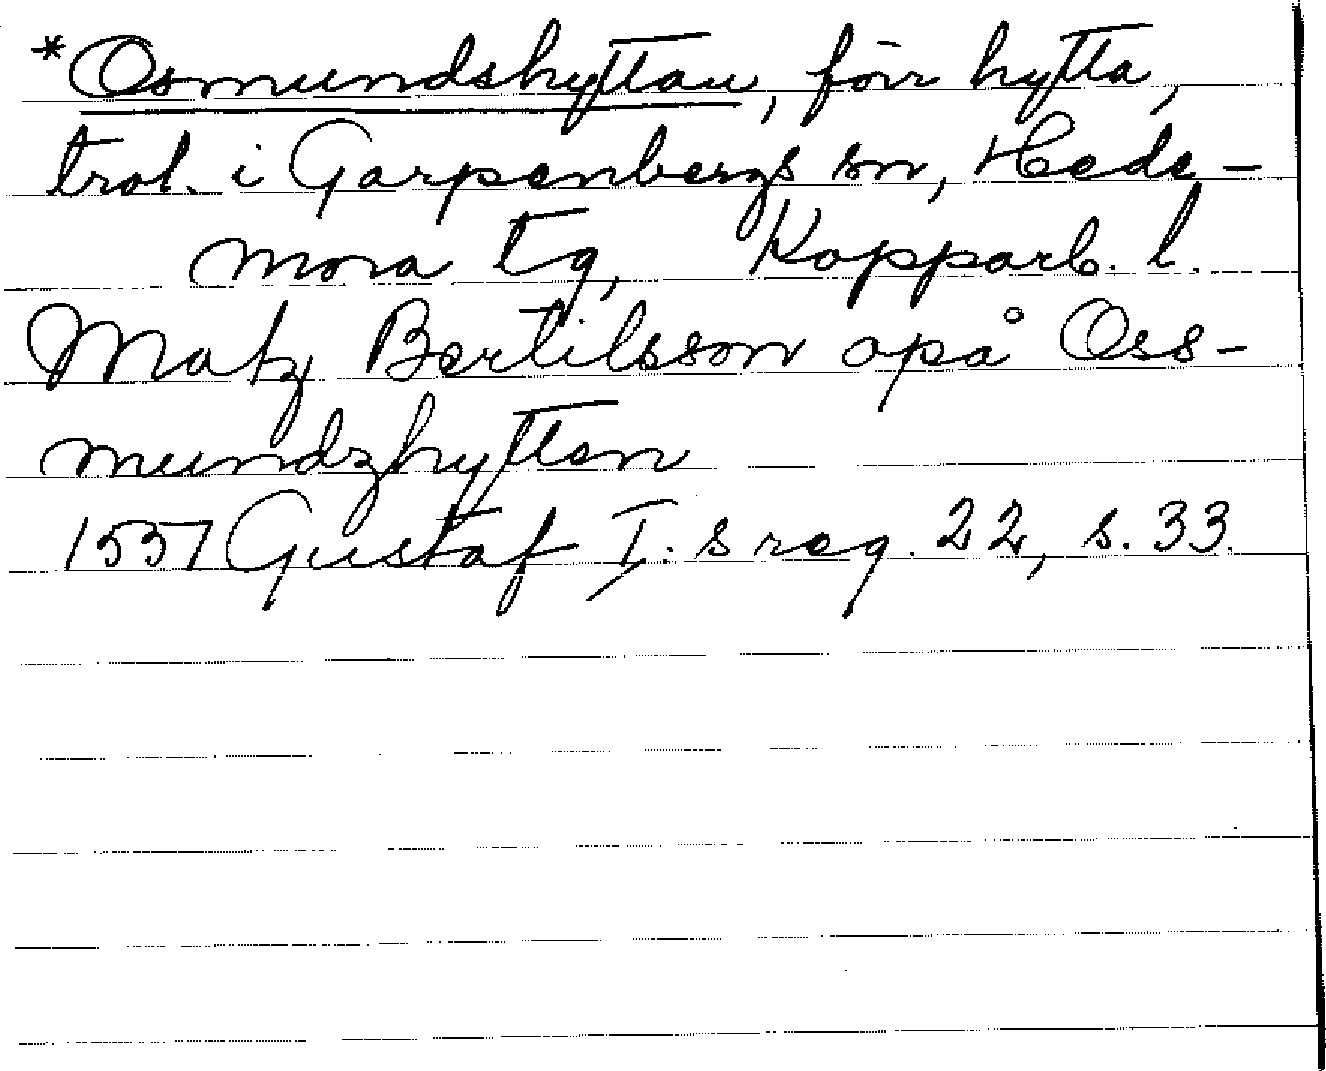 *Osmundshyttan, förr hytta,
trol. i Garpenbergs sn, Hede-
mora tg, Kopparb. l.
Matz Bertilsson opå Oss-
mundzhytten
1537 Gustaf I:s reg. 22, s. 33.